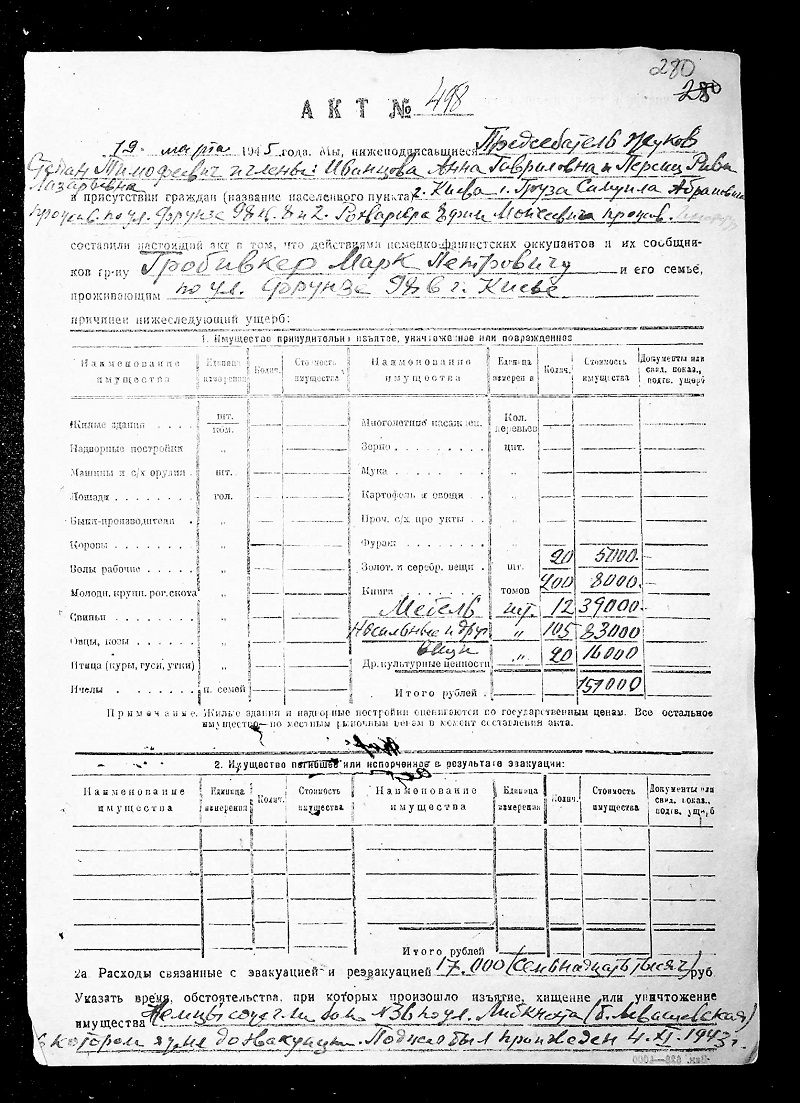 280
280
АКТ № 498
19. марта 1945 года. Мы, нижеподписавшиеся Председатель Жуков
Степан Тимофеевич и члены: Иванцова Анна Гавриловна и Персиц Рива
Лазарьевна
в присутствии граждан (название населенного пункта) г. Киева 1. Самуила Абрамовича
по ул. Фрунзе 98 2. Ефим Моисеевича
составили настоящий акт в том, что действиями немецко-фашистских оккупантов и их сообщни-
ков гр-ну Гробивкер Марк Петровичу и его семье,
проживающим по ул. Фрунзе г. Киеве
причинен нижеследующий ущерб:
1. Имущество принудительно изъятое, уничтоженное или поврежденное
Наименование имущества Единица измерения Колич. Стоимость имущества Наименование имущества Единица измерения Колич. Стоимость имущества Документы или свид. показ., подтв. ущерб
Жилые здания . . . . шт. ком. Многолетние насажден. Кол. деревьев
Надворные постройки " Зерно . . . . . . . . цнт.
Машины и с/х орудия . шт. Мука . . . . . . . . "
Лошади . . . . . . . гол. Картофель и овощи . "
Быки-производители . " Проч. с/х продукты . . "
Коровы . . . . . . . " Фураж . . . . . . . "
Волы рабочие . . . . " Золот. и серебр. вещи . шт. 20 5000.-
Молодн. крупн. рог. скота " Книги . . . . . . . томов 400 8000.-
Свиньи . . . . . . . " Мебель шт. 12 39000.-
Овцы, козы . . . . . " Носильные и друг. вещи " 105 83000
Птица (куры, гуси, утки) " Др. культурные ценности " 20 16000
Пчелы . . . . . . . п. семей Итого рублей . 151000
Примечание. Жилые здания и надворные постройки оцениваются по государственным ценам. Все остальное
имущество—по местным рыночным ценам в момент составления акта.
2. Имущество погибшее или испорченное в результате эвакуации:
Наименование имущества Единица измерения Колич. Стоимость имущества Наименование имущества Единица измерения Колич. Стоимость имущества Документы или свид. показ., подтв. ущерб
Итого рублей
2а Расходы связанные с эвакуацией и реэвакуацией 17.000 (семьнадцать тысяч) руб.
Указать время, обстоятельства, при которых произошло изъятие, хищение или уничтожение
имущества Немцы сожгли дом №36 по ул. (б. Львовская)
в котором я до эвакуации. Поджог был произведен 4.XI.1943 г.